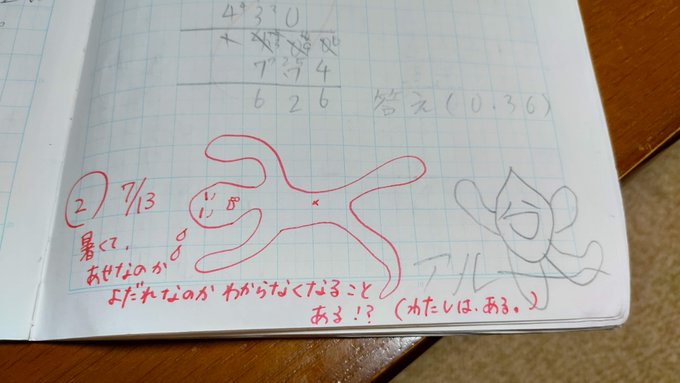 430
774
626
答え(0.36)
② 7/13
暑くて、
あせなのか
よだれなのか わからなくなること
ある!? (わたしは、ある。)
アルー